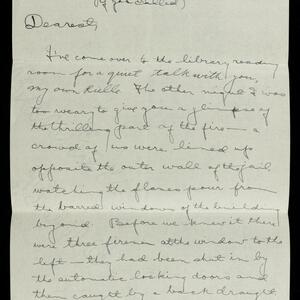 Dearest,
I've come over to the library reading
room for a quiet talk with you,
my own The other night I was
too weary to give you a glimpse of
the thrilling part of the fire — a
crowd of us were lined up
opposite the outer wall of the jail
watching the flames pour from
the barred windows of the building
beyond. Before we knew it there
were three firemen at the window to the
left — they had been shut in by
the automatic locking doors and
then caught by a back draught